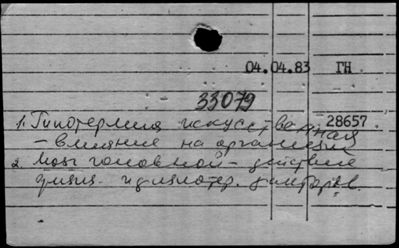 04.04.83 ГН
33079
1. Гипотермия искусственная 28657
– влияние на организм
2. Мозг головной – действие
физич. и физиотер. факторов.